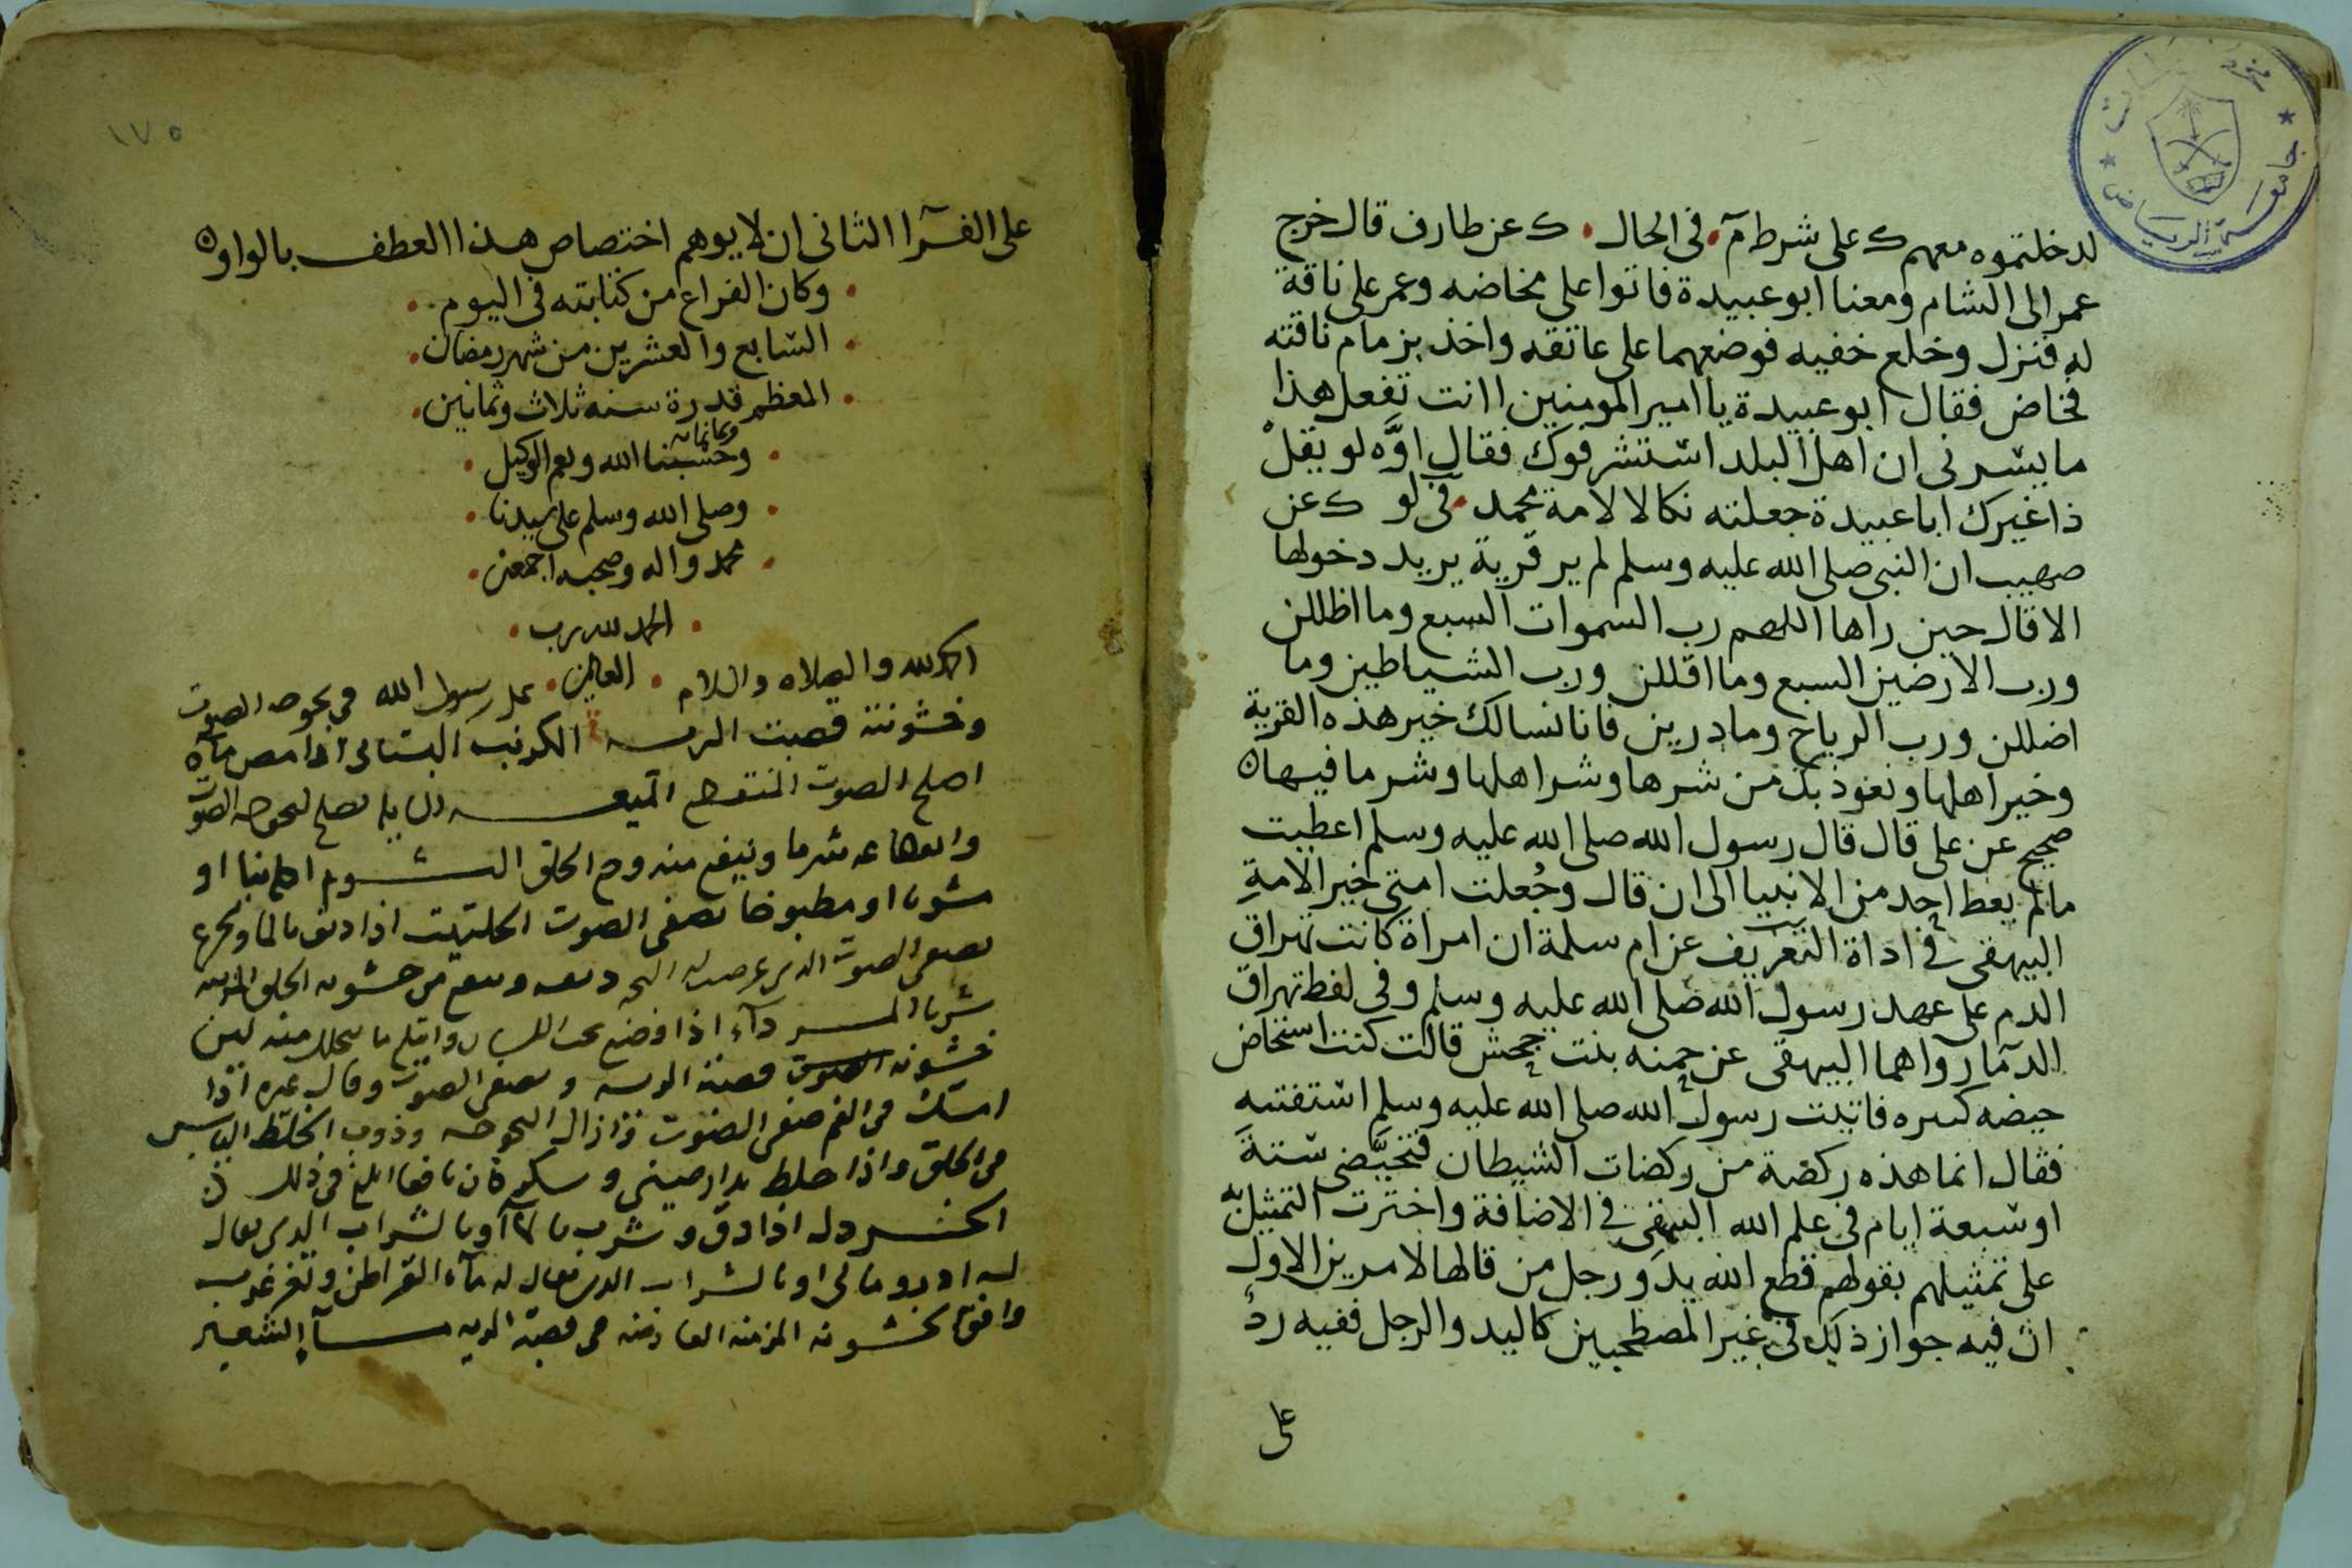 جامعة الرياض
لدخلتموه معهم ك على شرط م في الحال ك عن طارق قال خرج
عمر الى الشام ومعنا ابو عبيدة فاتوا على مخاضه وعمر على ناقة
له فنزل وخلع خفيه فوضعهما على عاتقه واخذ بزمام ناقته
فخاض فقال ابو عبيدة يا امير المومنين اانت تفعل هذا
ما يسرني ان اهل البلد استشرفوك فقال اوه لو يقل
ذا غيرك ابا عبيدة جعلته نكالا لامة محمد في لو ك عن
صهيب ان النبي صلى الله عليه وسلم لم ير قرية يريد دخولها
الا قال حين راها اللهم رب السموات السبع وما اظللن
ورب الارضين السبع وما اقللن ورب الشياطين وما
اضللن ورب الرياح وما درين فانا نسالك خير هذه القرية
وخير اهلها ونعوذ بك من شرها وشر اهلها وشر ما فيها ه
صحيح عن على قال قال رسول الله صلى الله عليه وسلم اعطيت
مالم يعط احد من الانبيا الى ان قال وجُعلت امتي خير الامةِ
البيهقي في اداة التعريف عن ام سلمة ان امراة كانت تهراق
الدم على عهد رسول الله صلى الله عليه وسلم وفي لفظ تهراق
الدما رواهما البيهقي عن حمنه بنت جحش قالت كنت استحاض
حيضه كبيره فاتيت رسول الله صلى الله عليه وسلم استفتيه
فقال انما هذه ركضة من ركضات الشيطان فتحيَّضي ستة
او سبعة ايام في علم الله البيهقي في الاضافة واخترت التمثيل
على تمثيلهم بقولهم قطع الله يد ورجل من قالها لامرين الاول
ان فيه جواز ذلك في غير المصطحبين كاليد والرجل ففيه ردٌّ
على
١٧٥
على الفرا الثاني ان لا يوهم اختصاص هذا العطف بالواو ه
وكان الفراغ من كتابته في اليوم
السابع والعشرين من شهر رمضان
المعظم قدرة سنه ثلاث وثمانين
وثمانمائه
وحسبنا الله ونعم الوكيل
وصلى الله وسلم على سيدنا
محمد واله وصحبه اجمعين
الحمد لله رب
العالمين
الحمد لله والصلاه والسلام على رسول الله في بحوحه الصوت
وخشونة قصبت الريه الكرنب البستاني اذا مص ماه
اصلح الصوت المنقطع الميعه تصلح لبحوحه الصوت
شربا وينفع منه الحلق الثوم اكل نيا او
مشويا او مطبوخا يصفى الصوت الحلتيت اذا ديف بالما وتجرع
يصفى الصوت الذي عرضت له البحه وينفع من خشونه الحلق المزمنه
شربا المر اذا وضع تحت اللسان وابتلع ما يتحلل منه لين
خشونه قصبة الريه ويصفي الصوت وقال غيره اذا
امسك في الفم صفى الصوت وازال البحوحه وذوب الخلط اليابس
في الحلق واذا خلط بدارصيني وسكر كان نافعا ابلغ في ذلك
الخردل اذا دق وشرب بالما او بالشراب الذي يقال
له ادرومالي او بالشراب الذي يقال له ماء القراطن وتغرغر به
وافق الخشونه المزمنه العارضه في قصبة الريه ماء الشعير